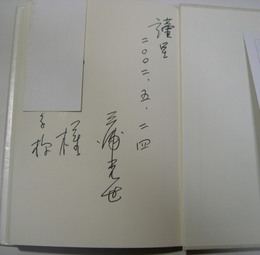 謹呈
二〇〇二、五、二四
三浦光世
様
様